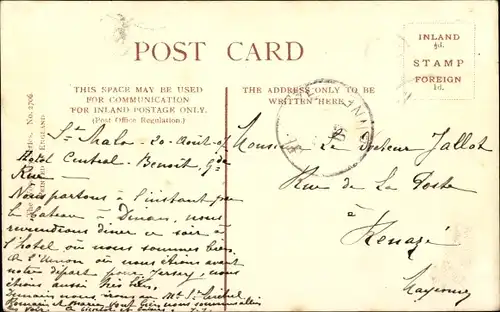 POST CARD
INLAND
½d.
STAMP
FOREIGN
1d.
THIS SPACE MAY BE USED
FOR COMMUNICATION
FOR INLAND POSTAGE ONLY.
(Post Office Regulation.)
THE ADDRESS ONLY TO BE
WRITTEN HERE
No. 2706
ENGLAND
St Malo. 20 Août
Hotel Central. Benoit Gde
Rue
Nous partons à l'instant par
le bateau à Dinan, nous
reviendrons diner ce soir à
l'hôtel où nous sommes bien
A l'Union où nous étions avant
notre départ pour Jersey, nous
étions aussi très bien.
Demain nous irons au Mt St Michel
Romain et Marie vont bien nous
Monsieur Le Docteur Jallot
Rue de La Poste
à
Renazé
Mayenne